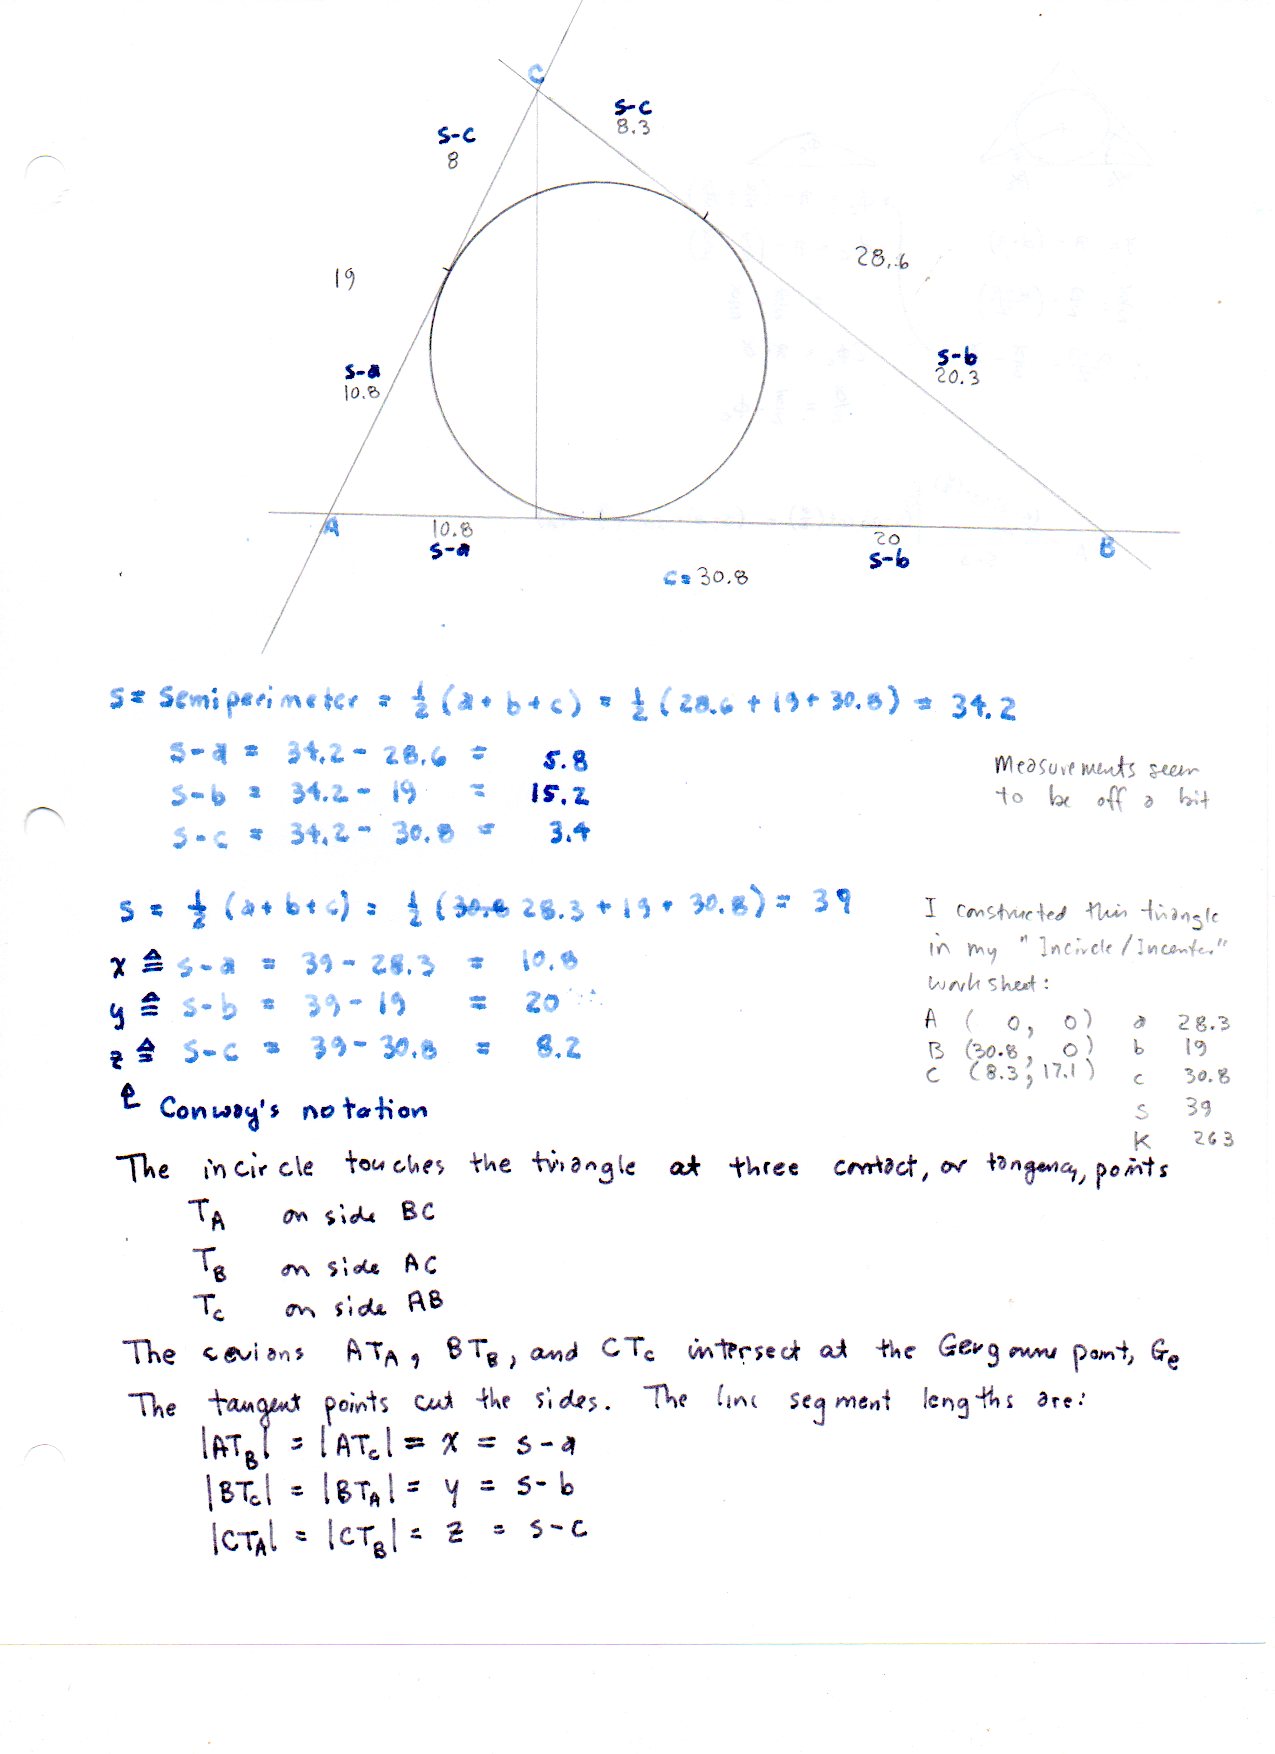 C
s-c
8.3
s-c
8
28.6
19
s-b
20.3
s-a
10.8
A
10.8
s-a
20
s-b
B
c= 30.8
s= Semiperimeter = 1/2 (a+b+c) = 1/2 (28.6 + 19 + 30.8) = 34.2
s-a = 34.2 - 28.6 = 5.8
s-b = 34.2 - 19 = 15.2
s-c = 34.2 - 30.8 = 3.4
Measurements seem
to be off a bit
s = 1/2 (a+b+c) = 1/2 (30.8 28.3 + 19 + 30.8) = 39
x ≙ s-a = 39 - 28.3 = 10.8
y ≙ s-b = 39 - 19 = 20
z ≙ s-c = 39 - 30.8 = 8.2
Conway's notation
I constructed this triangle
in my "Incircle/Incenter"
worksheet:
A ( 0, 0) a 28.3
B (30.8, 0) b 19
C (8.3, 17.1) c 30.8
s 39
K 263
The incircle touches the triangle at three contact, or tangency, points
TA on side BC
TB on side AC
TC on side AB
The cevians ATA, BTB, and CTC intersect at the Gergonne point, Ge
The tangent points cut the sides. The line segment lengths are:
|ATB| = |ATC| = x = s-a
|BTC| = |BTA| = y = s-b
|CTA| = |CTB| = z = s-c